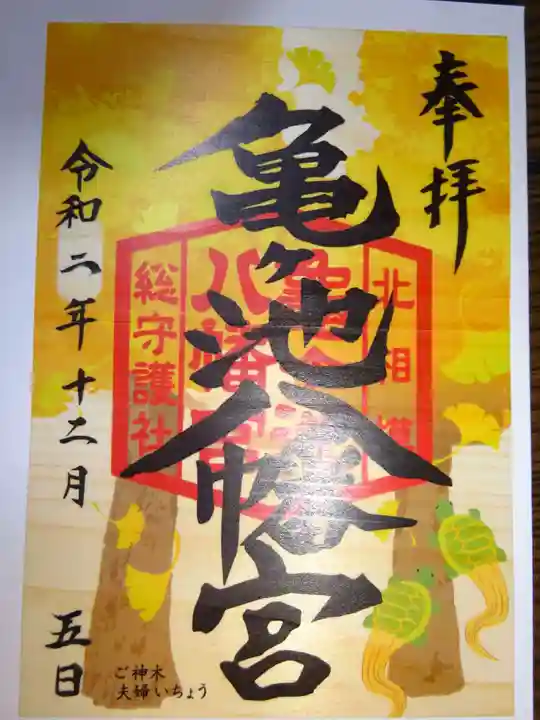 奉拝
北相模
亀ヶ池
八幡宮
総守護社
亀ヶ池八幡宮
令和二年十二月
五日
ご神木
夫婦いちょう